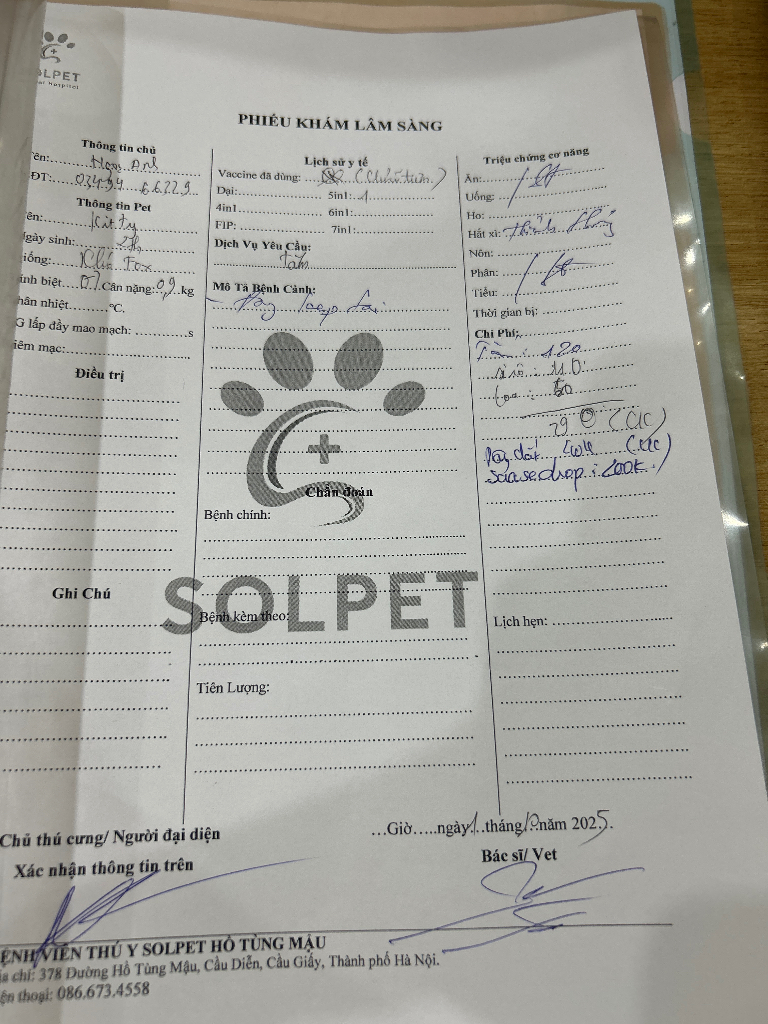 OLPET
al Hospital
PHIẾU KHÁM LÂM SÀNG
Thông tin chủ
ên:
ĐT:
Thông tin Pet
ên: Kit ty
gày sinh: 2th
iống: Fox
ính biệt Cân nặng: 0,9 kg
hân nhiệt °C.
G lấp đầy mao mạch: s
iêm mạc:
Điều trị
Ghi Chú
Lịch sử y tế
Vaccine đã dùng:
Dại: 5in1: 1
4in1 6in1:
FIP: 7in1:
Dịch Vụ Yêu Cầu:
tắm
Mô Tả Bệnh Cảnh:
Chẩn đoán
Bệnh chính:
SOLPET
Bệnh kèm theo:
Tiên Lượng:
Triệu chứng cơ năng
Ăn:
Uống:
Ho:
Hắt xì: thỉnh thoảng
Nôn:
Phân:
Tiểu:
Thời gian bị:
Chi Phí:
: 120
: 110
Loa : 60
290 (CK)
(CK
: 200k.)
Lịch hẹn:
Chủ thú cưng/ Người đại diện
Xác nhận thông tin trên
Giờ ngày 1 tháng 10 năm 2025.
Bác sĩ/ Vet
ỆNH VIỆN THÚ Y SOLPET HỒ TÙNG MẬU
ịa chỉ: 378 Đường Hồ Tùng Mậu, Cầu Diễn, Cầu Giấy, Thành phố Hà Nội.
iện thoại: 086.673.4558